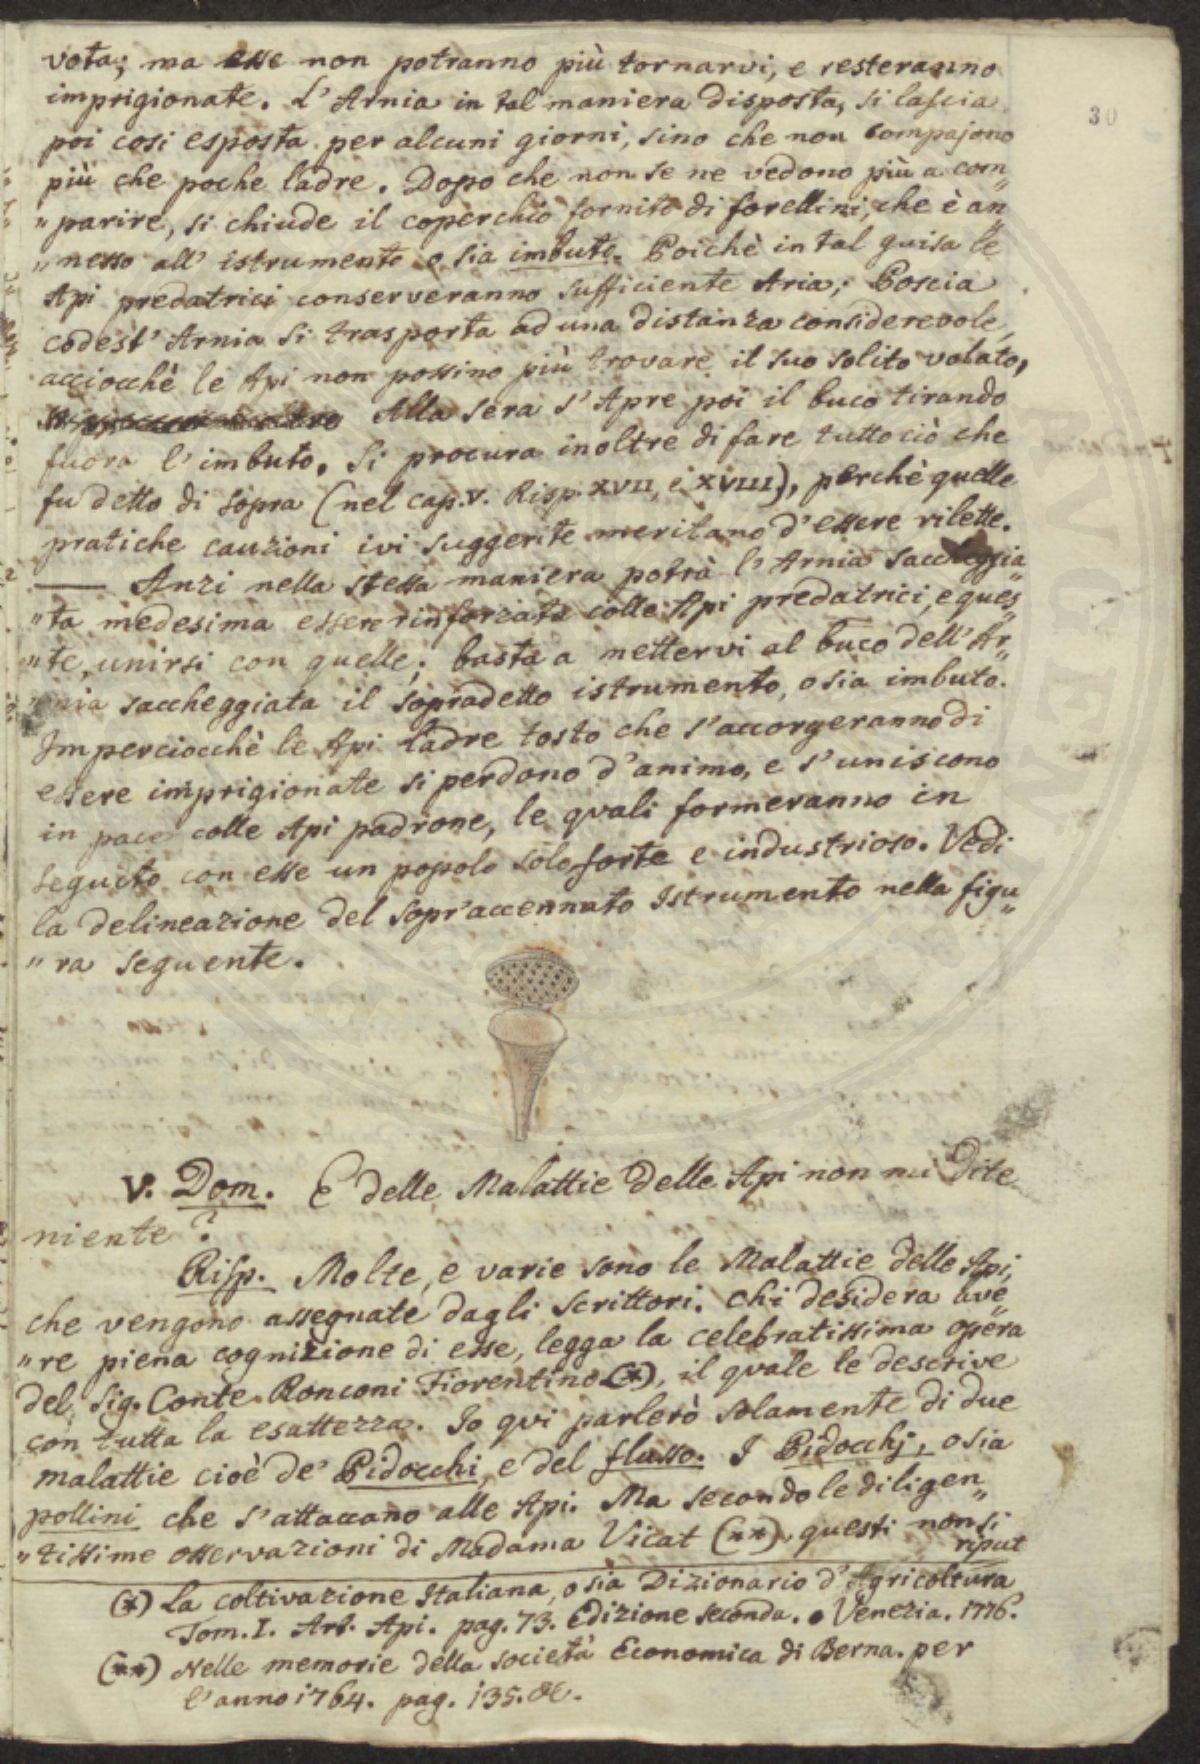 30
vota; ma esse non potranno più tornarvi, e resteranno
imprigionate. L'Arnia in tal maniera disposta, si lascia
poi cosi esposta per alcuni giorni, sino che non compajono
più che poche ladre. Dopo che non se ne vedono più a com„
„parire, si chiude il coperchio fornito di forellini, che è an„
„nesso all' istrumento o sia imbuto. Poichè in tal guisa le
Api predatrici conserveranno sufficiente Aria; Poscia
codest' Arnia si trasporta ad una distanza considerevole,
acciocchè le Api non possino più trovare il suo solito volato,
Alla sera s'Apre poi il buco tirando
fuora l'imbuto. Si procura inoltre di fare tutto ciò che
fu detto di sopra (nel cap. V. Risp. XVII, e XVIII), perchè quelle
pratiche cauzioni ivi suggerite meritano d'essere rilette.
—— Anzi nella stessa maniera potrà l'Arnia saccheggia„
„ta medesima essere rinforzata colle Api predatrici, e ques„
„te, unirsi con quelle; basta a mettervi al buco dell'Ar„
„nia saccheggiata il sopradetto istrumento, o sia imbuto.
Imperciocchè le Api ladre tosto che s'accorgeranno di
essere imprigionate si perdono d'animo, e s'uniscono
in pace colle Api padrone, le quali formeranno in
seguito con esse un popolo solo forte e industrioso. Vedi
la delineazione del sopr'accennato Istrumento nella figu„
„ra seguente.
V. Dom. E delle Malattie delle Api non mi dite
niente?
Risp. Molte, e varie sono le Malattie delle Api,
che vengono assegnate dagli scrittori. Chi desidera ave„
„re piena cognizione di esse, legga la celebratissima opera
del Sig. Conte Ronconi Fiorentino (*), il quale le descrive
con tutta la esattezza. Io qui parlerò solamente di due
malattie cioè de' Pidocchi, e del flusso. I Pidocchj, o sia
pollini che s'attaccano alle Api. Ma secondo le diligen„
„tissime osservazioni di Madama Vicat (**), questi non si
riput
(*) La coltivazione Italiana, o sia Dizionario d'Agricoltura
Tom. I. Art. Api. pag. 73. Edizione seconda. Venezia. 1776.
(**) Nelle memorie della società Economica di Berna. per
l'anno 1764. pag. 135. &c.